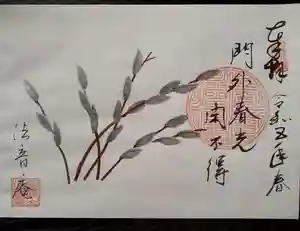 奉拝
令和五年春
門外春光
関不得
法音庵